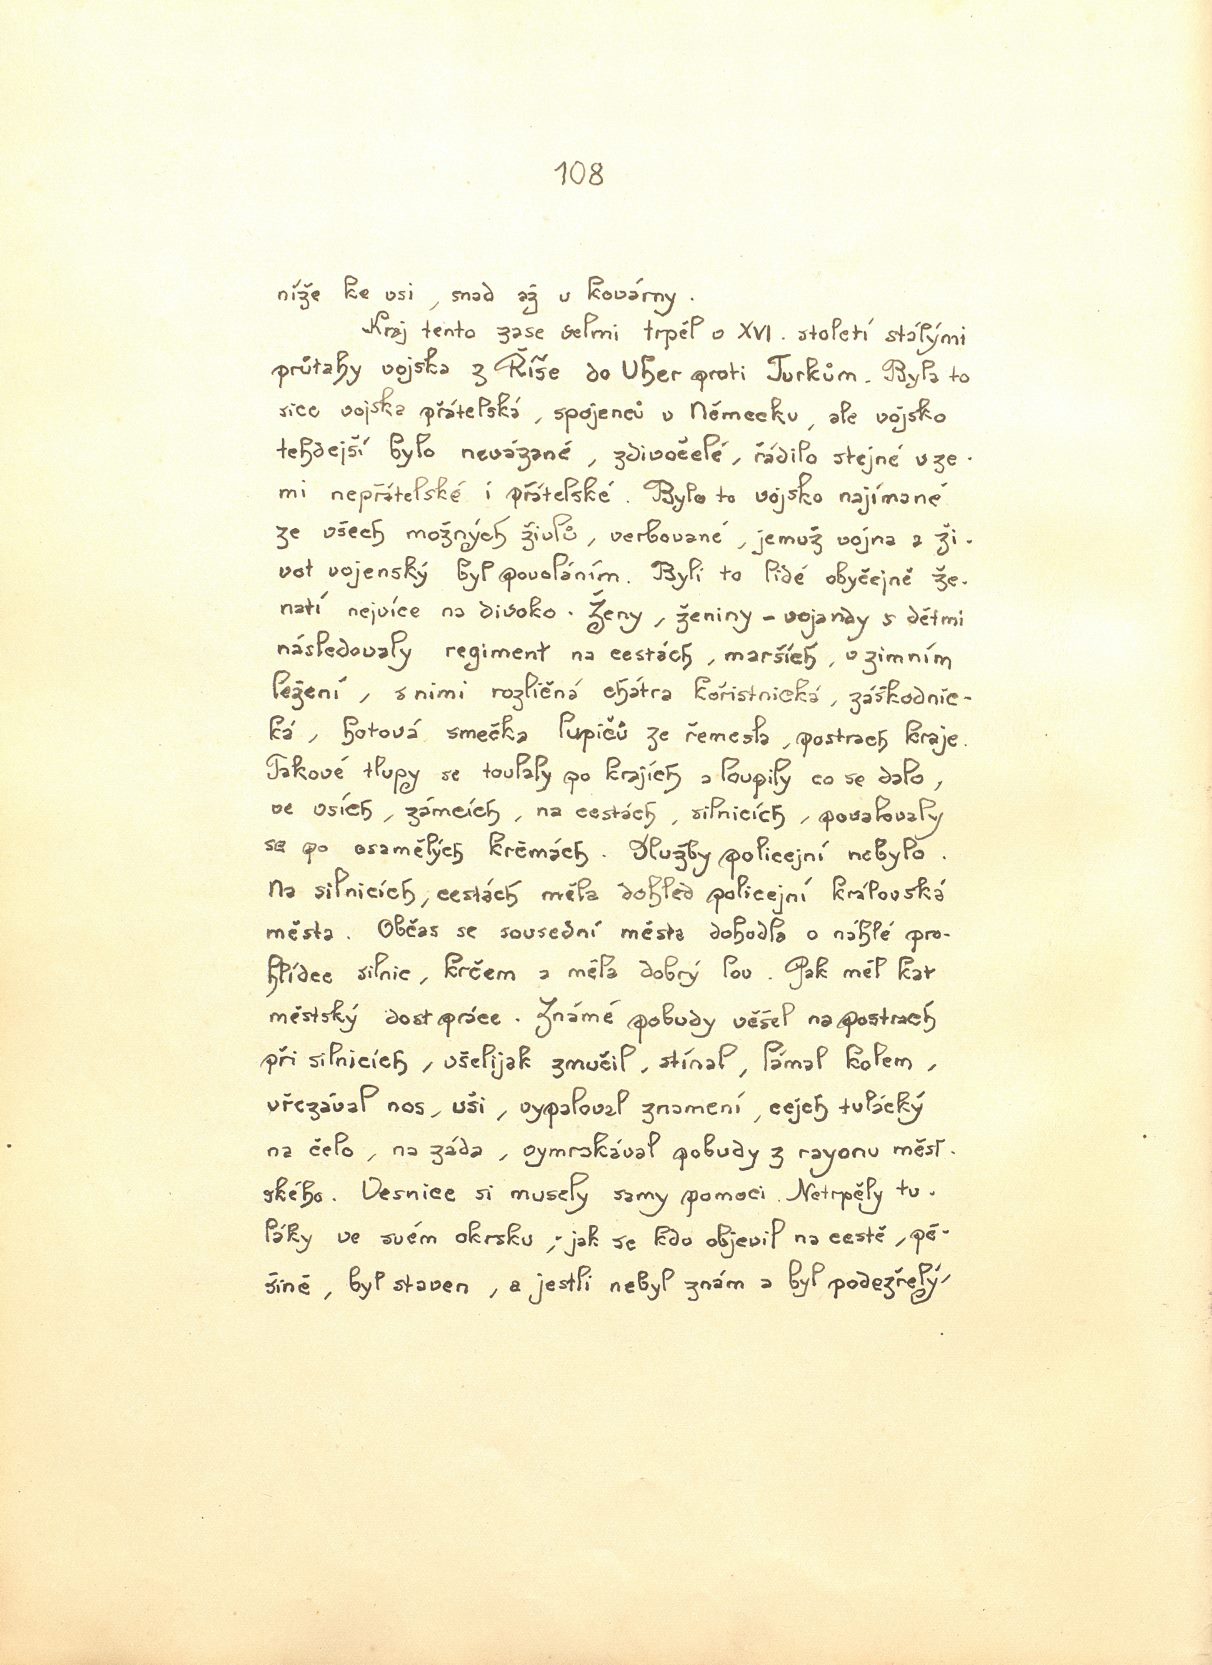 108
níže ke vsi, snad až u kovárny.
Kraj tento zase velmi trpěl v XVI. století stálými
průtahy vojska z Říše do Uher proti Turkům. Byla to
sice vojska přátelská, spojenců v Německu, ale vojsko
tehdejší bylo nevázané, zdivočelé, řádilo stejně v ze-
mi nepřátelské i přátelské. Bylo to vojsko najímané
ze všech možných živlů, verbované, jemuž vojna a ži-
vot vojenský byl povoláním. Byli to lidé obyčejně že-
natí nejvíce na divoko. Ženy, ženiny - vojandy s dětmi
následovaly regiment na cestách, marších, v zimním
ležení, s nimi rozličná chátra kořistnická, záškodnic-
ká, hotová smečka lupičů ze řemesla, postrach kraje.
Takové tlupy se toulaly po krajích a loupily co se dalo,
ve vsích, zámcích, na cestách, silnicích, povalovaly
se po osamělých krčmách. Služby policejní nebylo.
Na silnicích, cestách měla dohled policejní královská
města. Občas se sousední města dohodla o náhlé pro-
hlídce silnic, krčem a měla dobrý lov. Pak měl kat
městský dost práce. Známé pobudy věšel na postrach
při silnicích, všelijak zmučil, stínal, lámal kolem,
uřezával nos, uši, vypaloval znamení, cejch tulácký
na čelo, na záda, vymrskával pobudy z rayonu měst-
ského. Vesnice si musely samy pomoci. Netrpěly tu-
láky ve svém okrsku, - jak se kdo objevil na cestě, pě-
šině, byl staven, a jestli nebyl znám a byl podezřelý,